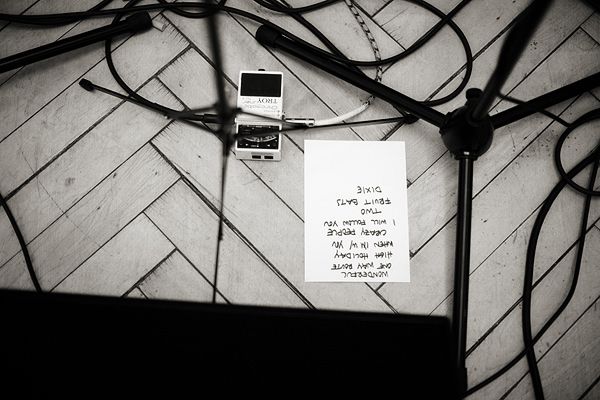 WONDERFUL
ONE WAY ROUTE
HIGH HOLIDAY
WHEN IN W/ YOU
CRAZY PEOPLE
I WILL FOLLOW YOU
TWO
FRUIT BATS
DIXIE
TROY
Chromatic